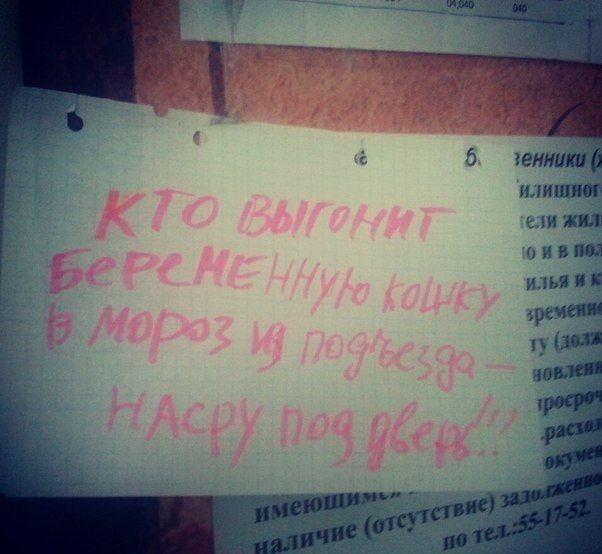 04,040 040
КТО ВЫГОНИТ
БЕРЕМЕННУЮ КОШКУ
В МОРОЗ ИЗ ПОДЪЕЗДА —
НАСРУ ПОД ДВЕРЬ!!!
б.
венники (
илищног
ели жил
ю и в по
илья и к
временно
ту (долж
новлен
просроч
расхо
окумен
имеющим
наличие (отсутствие) задолженно
по тел.:55-17-52.